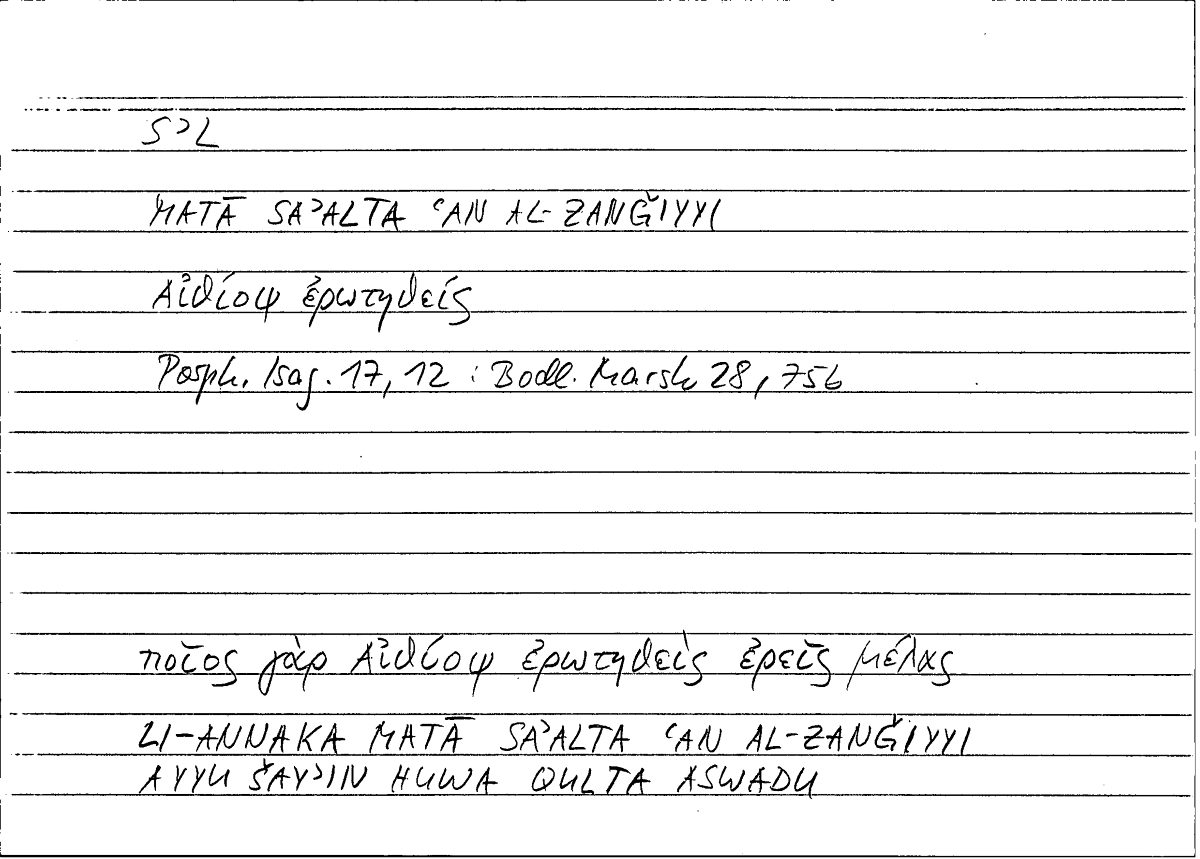 SʾL
MATĀ SAʾALTA ʿAN AL-ZANǦIYYI
Αἰθίοψ ἐρωτηθείς
Porph. Isag. 17, 12 : Bodl. Marsh 28, 756
ποῖος γὰρ Αἰθίοψ ἐρωτηθεὶς ἐρεῖς μέλας
LI-ANNAKA MATĀ SAʾALTA ʿAN AL-ZANǦIYYI
AYYU ŠAYʾIN HUWA QULTA ASWADU